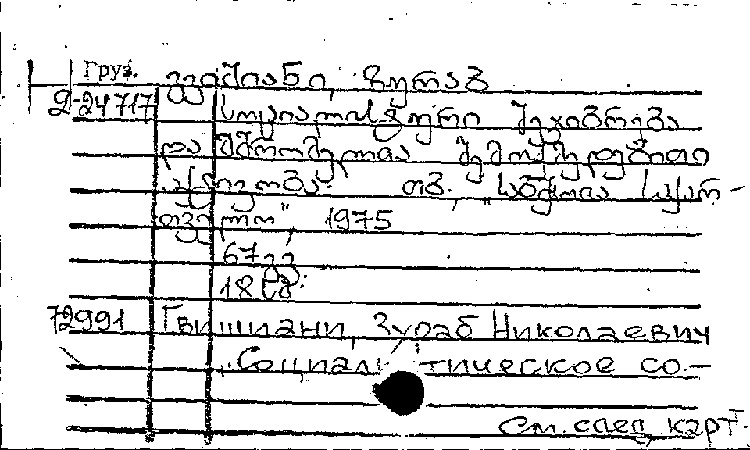 Груз. გვიშიანი, ზურაბ
2-24717 სოციალისტური შეჯიბრება
და მშრომელთა შემოქმედებითი
აქტივობა. თბ., „საბჭოთა საქარ-
თველო", 1975
67 გვ.
18 სმ.
72991 Гвишиани, Зураб Николаевич
Социал тическое со-
См. след. карт.